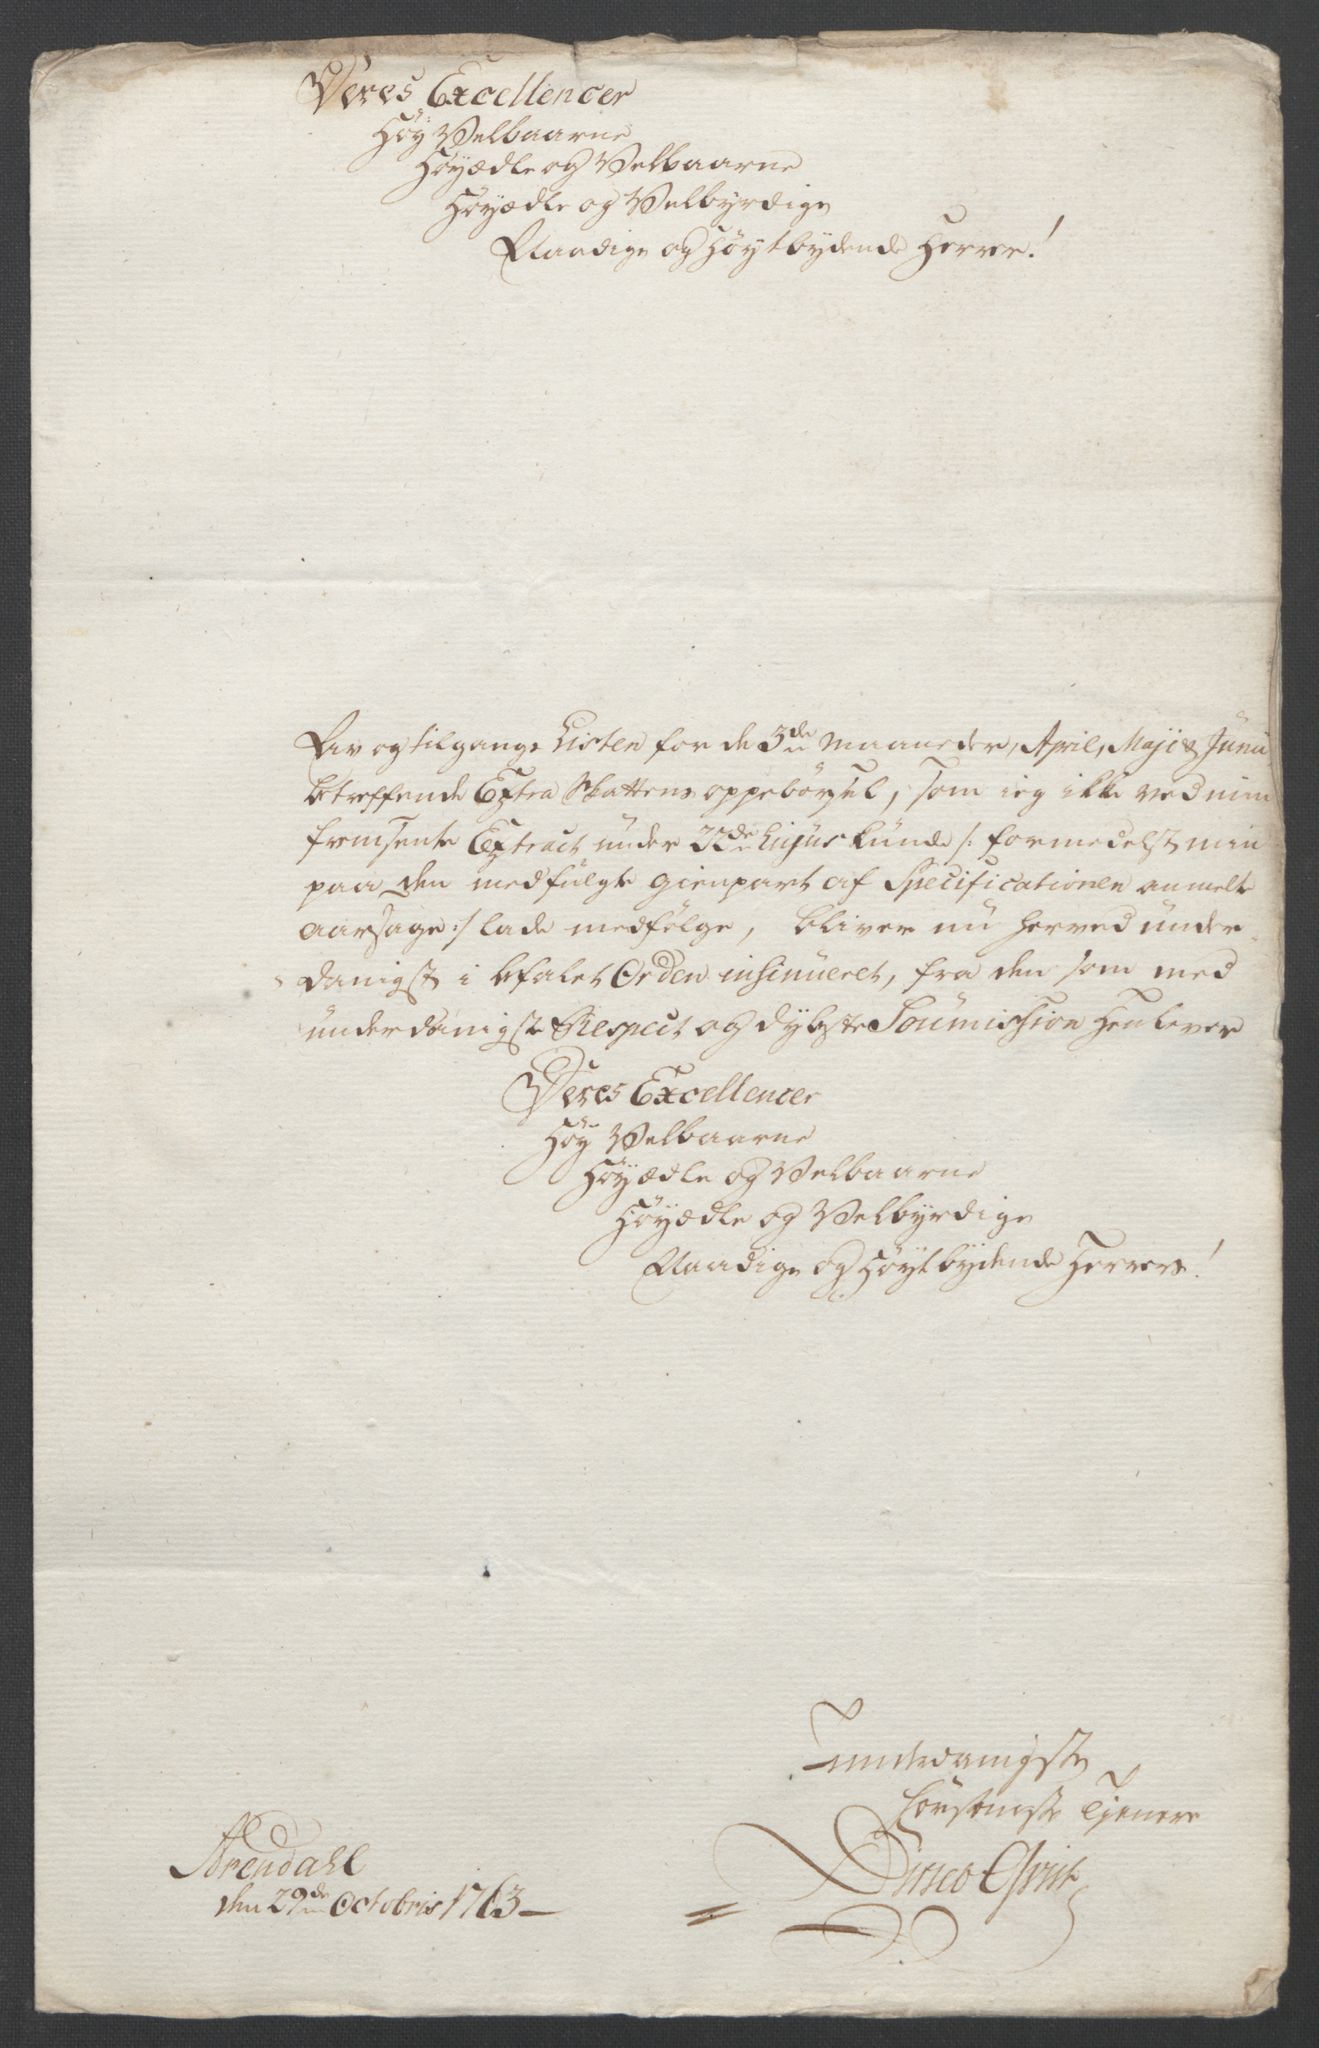 Deres Excellencer
Høy Velbaarne
Høyædle og Velbaarne
Høyædle og Velbyrdige
Naadige og Høytbydende Herrer!
Av og tilgangs Listen for de 3de Maaneder, April, Maji & Junii
betreffende Extra Skattens oppebørsel, som ieg ikke ved min
fremsente Extract under 22de hujus kunde /: formedelst min
paa den medfulgte gienpart af Specificationen anmelte
aarsage :/ lade medfølge, bliver nu herved under-
danigst i befalet Orden insinueret, fra den som med
underdanigste Respect og dybeste Soumission henlever
Deres Excellencer
Høy Velbaarne
Høyædle og Velbaarne
Høyædle og Velbyrdige
Naadige og Høytbydende Herrers!
underdanigste
Tjenere
Arendahl
den 29de Octobris 1763